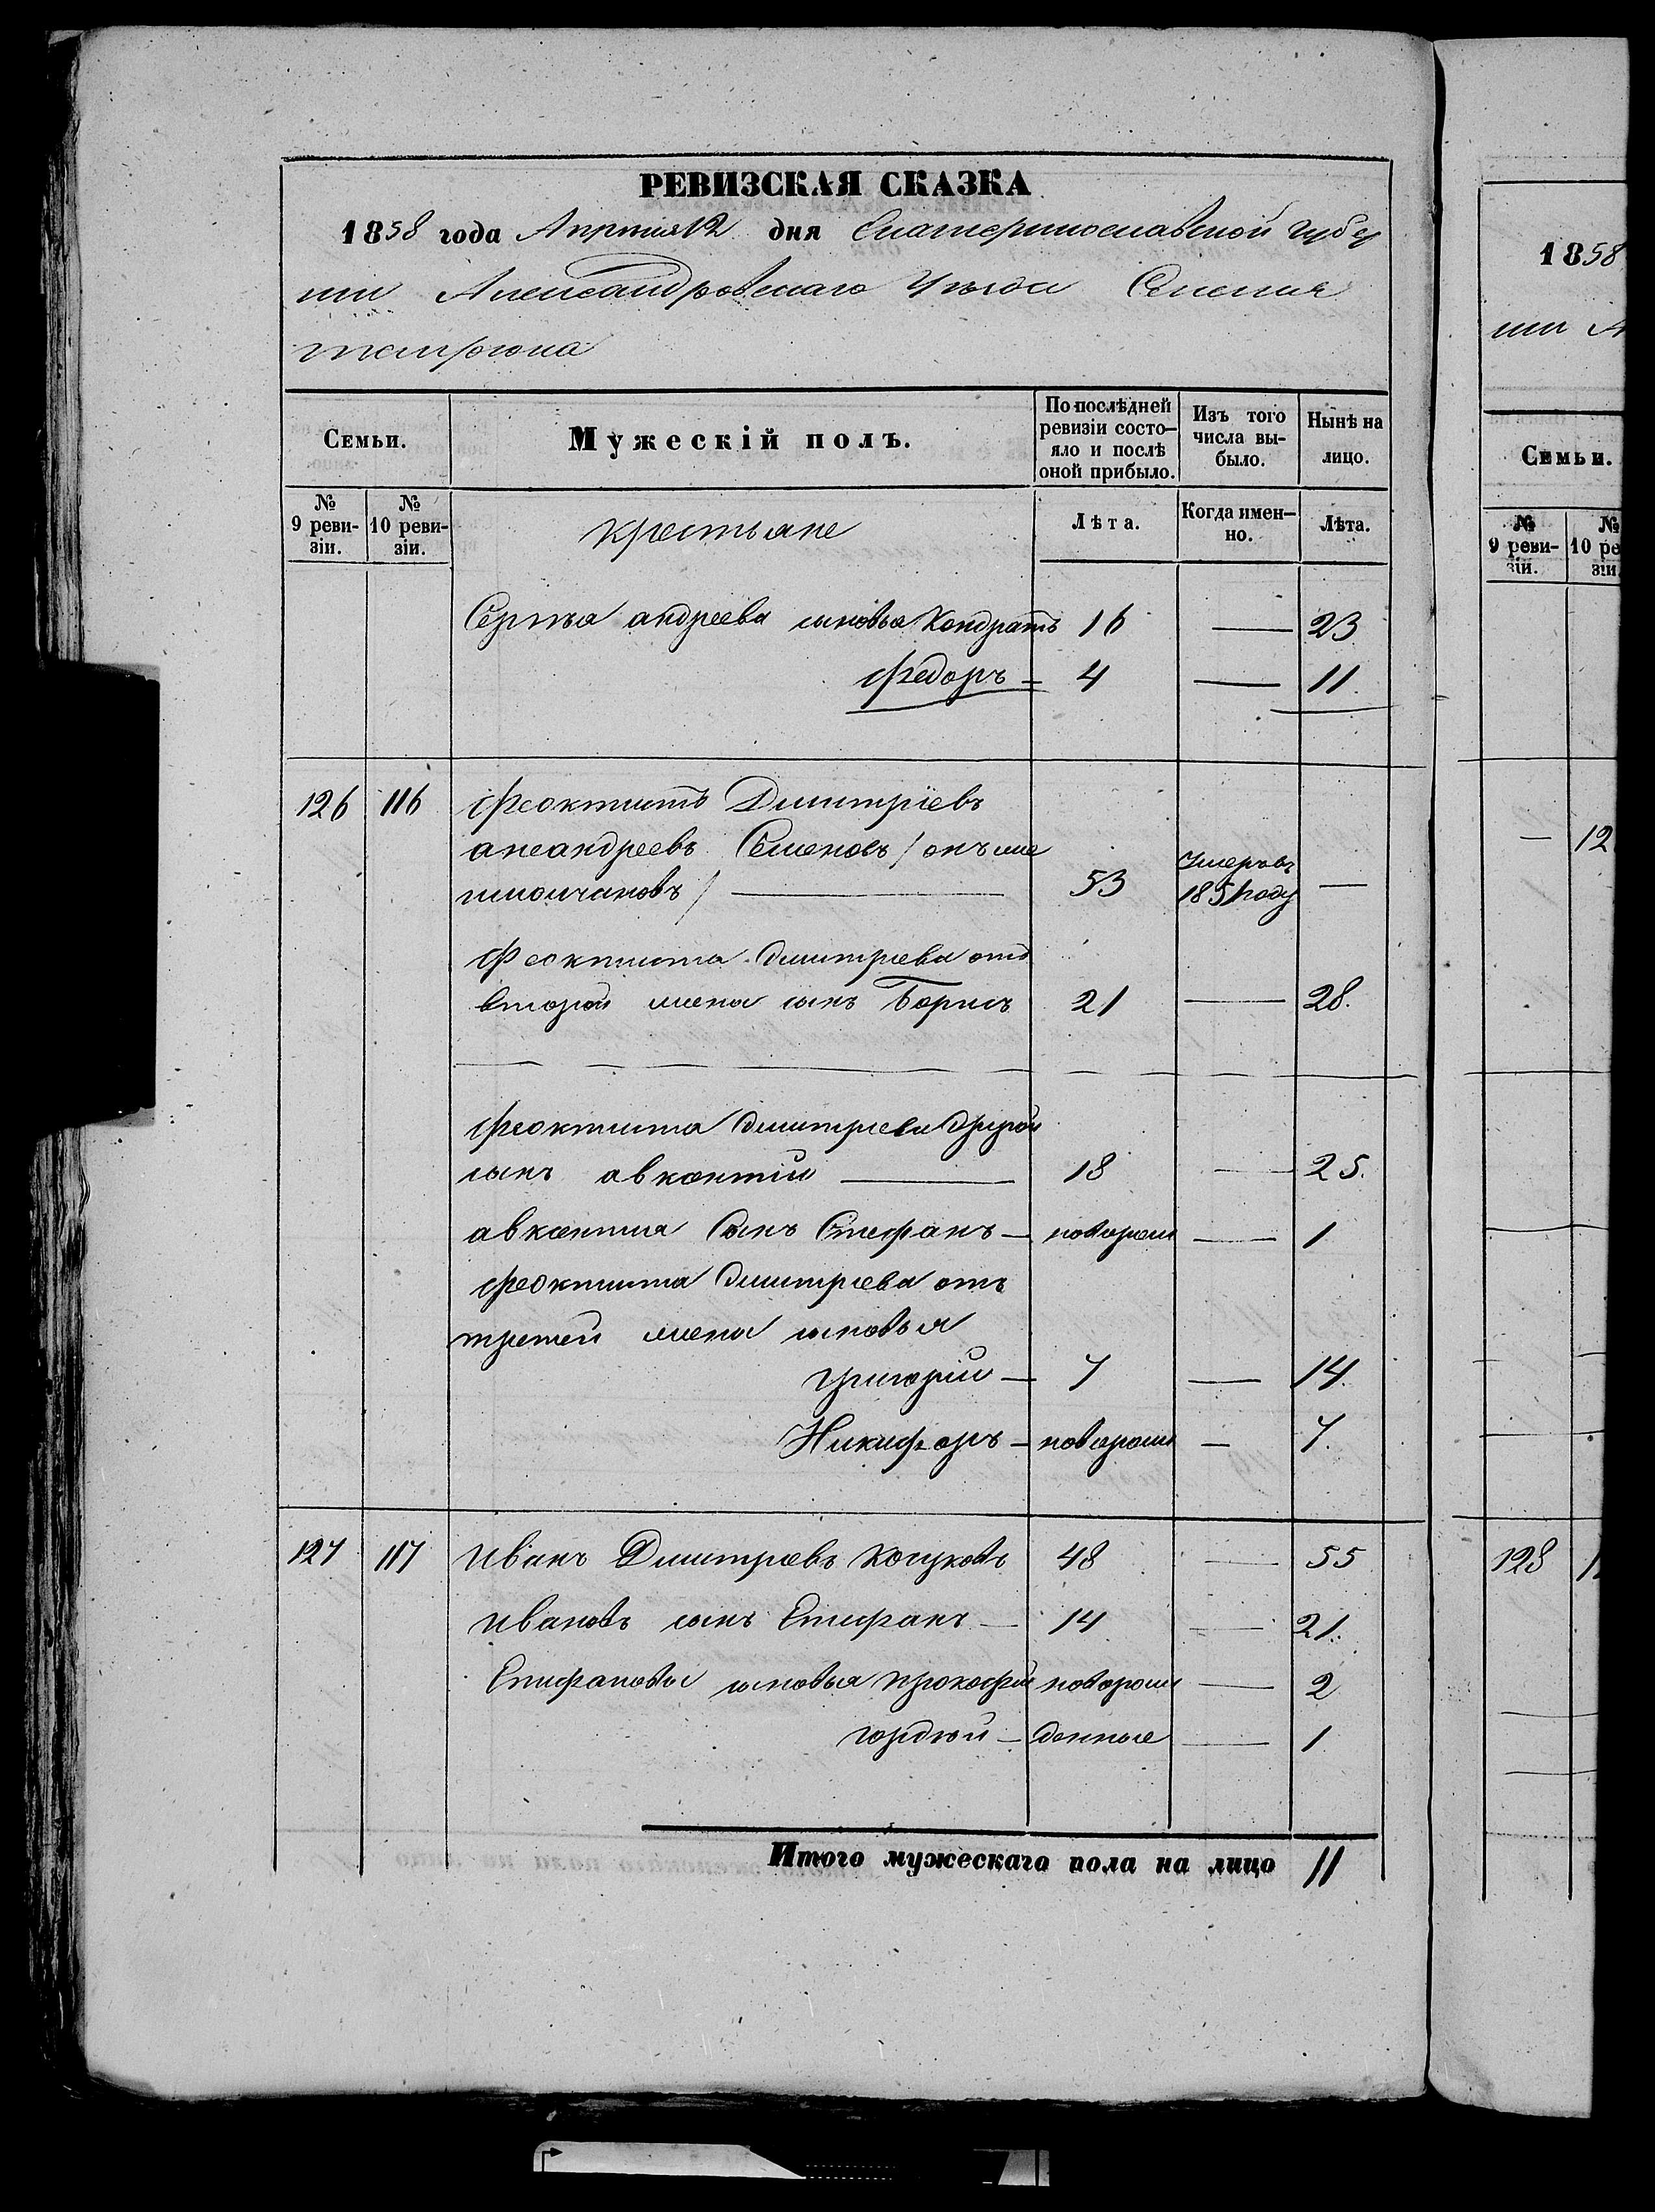 РЕВИЗСКАЯ СКАЗКА
1858 года Апреля 12 дня Екатеринославской Губер
нии Александровского Уезда Селения
Семьи.
Мужескій полъ.
По послѣдней ревизіи состо-
яло и послѣ оной прибыло.
Изъ того числа вы-
было.
Нынѣ на лицо.
№ 9 реви-
зіи.
№ 10 реви-
зіи.
крестьяне
Лѣта.
Когда имен-
но.
Лѣта.
Сергѣя андреева сыновья Кондратъ 16 — 23
Федоръ 4 — 11
126 116 Феоктистъ Дмитріевъ
Семеновъ / онъ же
53 Умеръ въ 1851 году —
Феоктиста Дмитриева отъ
второй жены сынъ Борисъ 21 — 28.
Феоктиста Дмитриева другой
сынъ авксентий 18 — 25.
авксентия Сынъ Стефанъ — новорож — 1
Феоктиста Дмитриева отъ
третей жены сыновья
Григорий — 7 — 14.
Никифоръ — новорож — 7.
127 117 Иванъ Дмитриевъ 48 — 55
Ивановъ сынъ Епифанъ — 14 — 21.
Епифановы сыновья прокофий новорож — 2
гордѣй — денные — 1
Итого мужескаго пола на лицо 11
1858
нии А
Семьи.
№ 9 реви-
зіи.
№ 10 ре
зіи.
— 12
128 1